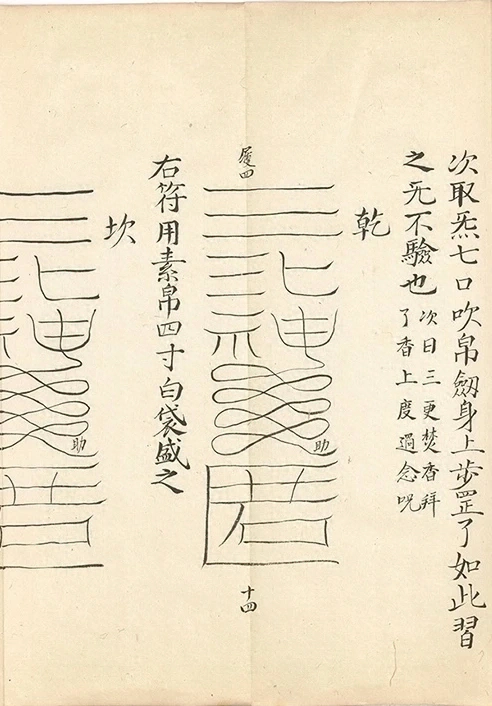 次取炁七口吹帛劔身上步罡了如此習
之无不驗也
次日三更焚香拜
了香上度過念呪
乾
十四
助
右符用素帛四寸白袋盛之
坎
助